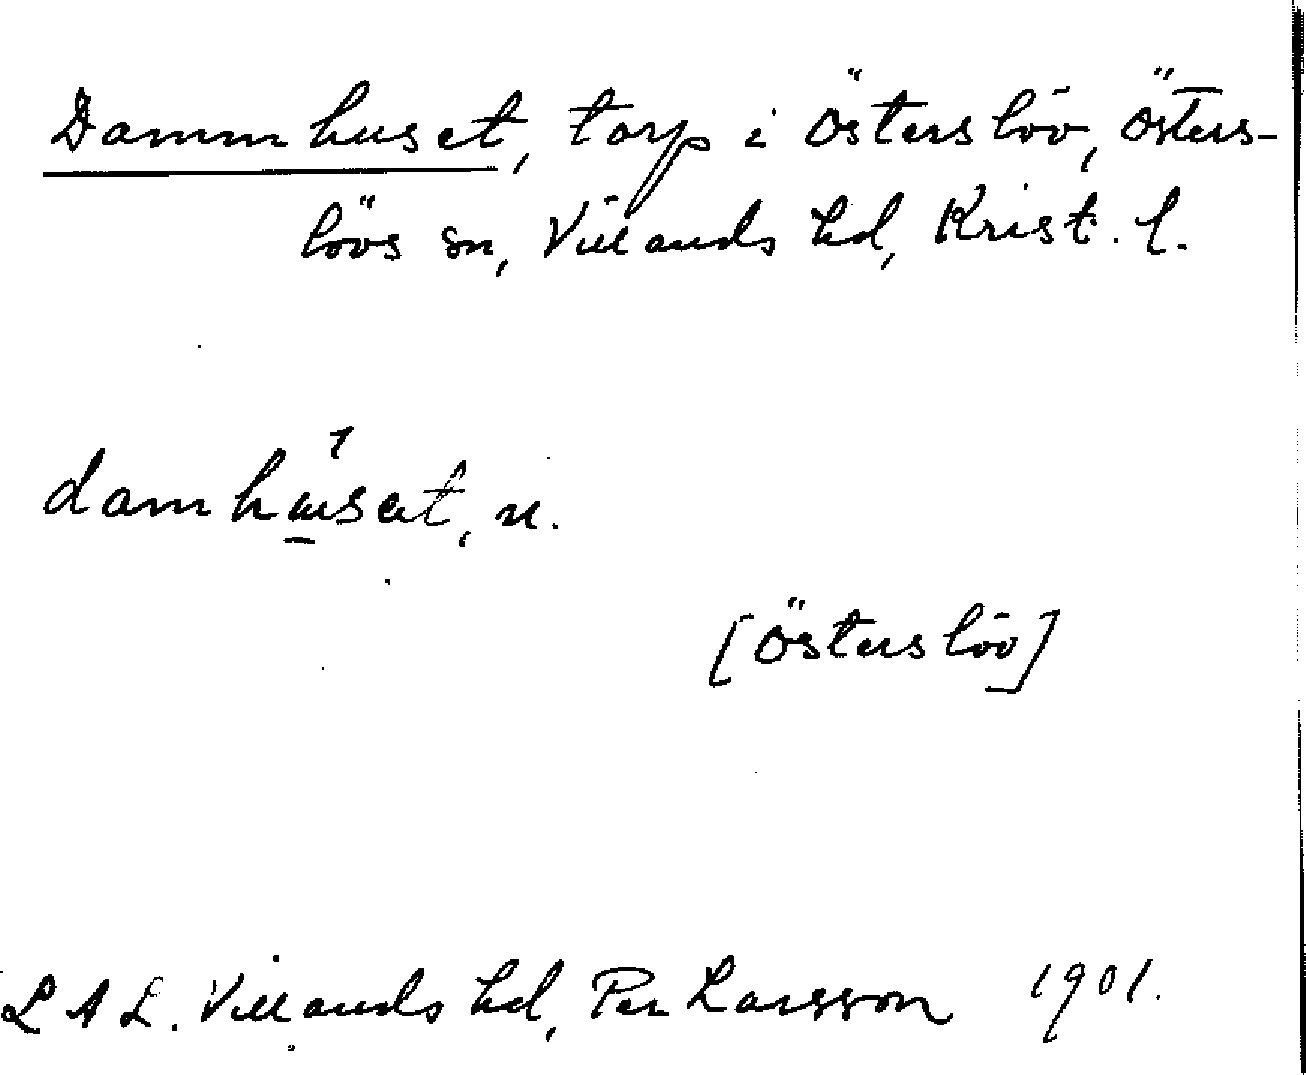 Dammhuset, torp i Österslöv, Östers-
lövs sn, Villands hd, Krist. l.
damhúsat, n.
[Österslöv]
L A L. Villands hd, Per Larsson 1901.